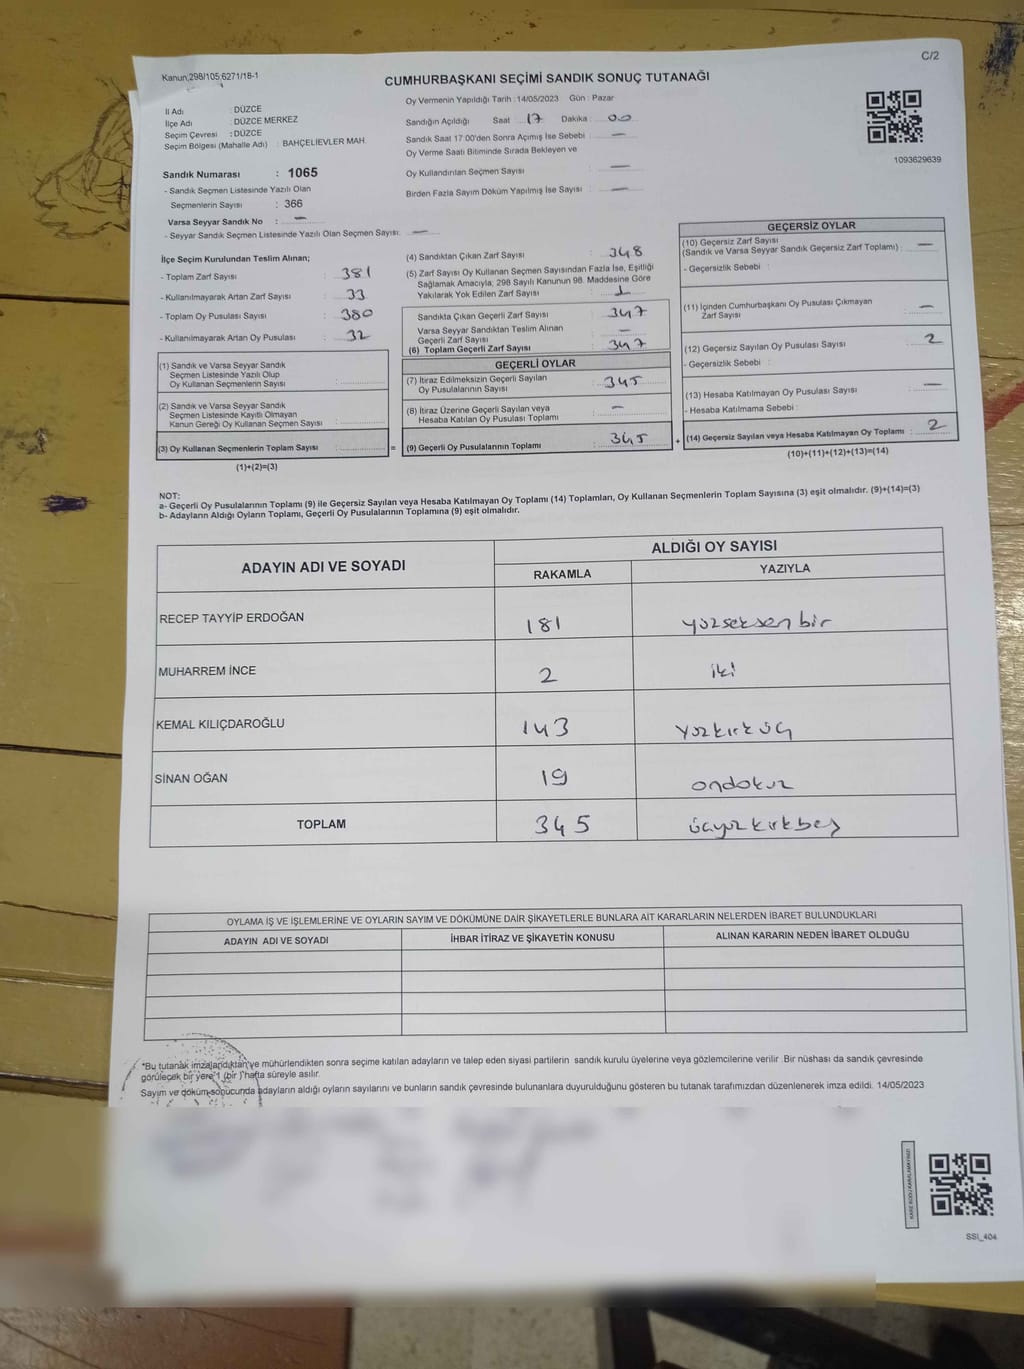 Kanun,298/105;6271/18-1
C/2
CUMHURBAŞKANI SEÇİMİ SANDIK SONUÇ TUTANAĞI
İl Adı : DÜZCE
İlçe Adı : DÜZCE MERKEZ
Seçim Çevresi : DÜZCE
Seçim Bölgesi (Mahalle Adı) : BAHÇELİEVLER MAH.
Sandık Numarası : 1065
- Sandık Seçmen Listesinde Yazılı Olan
Seçmenlerin Sayısı : 366
Varsa Seyyar Sandık No : —
- Seyyar Sandık Seçmen Listesinde Yazılı Olan Seçmen Sayısı: —
Oy Vermenin Yapıldığı Tarih :14/05/2023 Gün : Pazar
Sandığın Açıldığı Saat : 17 Dakika : 00
Sandık Saat 17.00'den Sonra Açımış İse Sebebi : —
Oy Verme Saati Bitiminde Sırada Bekleyen ve
Oy Kullandırılan Seçmen Sayısı : —
Birden Fazla Sayım Döküm Yapılmış İse Sayısı : —
1093629639
İlçe Seçim Kurulundan Teslim Alınan;
- Toplam Zarf Sayısı : 381
- Kullanılmayarak Artan Zarf Sayısı : 33
- Toplam Oy Pusulası Sayısı : 380
- Kullanılmayarak Artan Oy Pusulası : 32
(1) Sandık ve Varsa Seyyar Sandık
Seçmen Listesinde Yazılı Olup
Oy Kullanan Seçmenlerin Sayısı :
(2) Sandık ve Varsa Seyyar Sandık
Seçmen Listesinde Kayıtlı Olmayan
Kanun Gereği Oy Kullanan Seçmen Sayısı :
(3) Oy Kullanan Seçmenlerin Toplam Sayısı : =
(1)+(2)=(3)
(4) Sandıktan Çıkan Zarf Sayısı : 348
(5) Zarf Sayısı Oy Kullanan Seçmen Sayısından Fazla İse, Eşitliği
Sağlamak Amacıyla; 298 Sayılı Kanunun 98. Maddesine Göre
Yakılarak Yok Edilen Zarf Sayısı : 1
Sandıkta Çıkan Geçerli Zarf Sayısı : 347
Varsa Seyyar Sandıktan Teslim Alınan
Geçerli Zarf Sayısı : —
(6) Toplam Geçerli Zarf Sayısı : 347
GEÇERLİ OYLAR
(7) İtiraz Edilmeksizin Geçerli Sayılan
Oy Pusulalarının Sayısı : 345
(8) İtiraz Üzerine Geçerli Sayılan veya
Hesaba Katılan Oy Pusulası Toplamı : —
(9) Geçerli Oy Pusulalarının Toplamı : 345 +
GEÇERSİZ OYLAR
(10) Geçersiz Zarf Sayısı
(Sandık ve Varsa Seyyar Sandık Geçersiz Zarf Toplamı) : —
- Geçersizlik Sebebi :
(11) İçinden Cumhurbaşkanı Oy Pusulası Çıkmayan
Zarf Sayısı : —
(12) Geçersiz Sayılan Oy Pusulası Sayısı : 2
- Geçersizlik Sebebi :
(13) Hesaba Katılmayan Oy Pusulası Sayısı : —
- Hesaba Katılmama Sebebi :
(14) Geçersiz Sayılan veya Hesaba Katılmayan Oy Toplamı : 2
(10)+(11)+(12)+(13)=(14)
NOT:
a- Geçerli Oy Pusulalarının Toplamı (9) ile Geçersiz Sayılan veya Hesaba Katılmayan Oy Toplamı (14) Toplamları, Oy Kullanan Seçmenlerin Toplam Sayısına (3) eşit olmalıdır. (9)+(14)=(3)
b- Adayların Aldığı Oyların Toplamı, Geçerli Oy Pusulalarının Toplamına (9) eşit olmalıdır.
ADAYIN ADI VE SOYADI ALDIĞI OY SAYISI
RAKAMLA YAZIYLA
RECEP TAYYİP ERDOĞAN 181 yüzseksen bir
MUHARREM İNCE 2 iki
KEMAL KILIÇDAROĞLU 143 yüzkırküç
SİNAN OĞAN 19 ondokuz
TOPLAM 345 üçyüzkırkbeş
OYLAMA İŞ VE İŞLEMLERİNE VE OYLARIN SAYIM VE DÖKÜMÜNE DAİR ŞİKAYETLERLE BUNLARA AİT KARARLARIN NELERDEN İBARET BULUNDUKLARI
ADAYIN ADI VE SOYADI İHBAR İTİRAZ VE ŞİKAYETİN KONUSU ALINAN KARARIN NEDEN İBARET OLDUĞU
*Bu tutanak imzalandıktan ve mühürlendikten sonra seçime katılan adayların ve talep eden siyasi partilerin sandık kurulu üyelerine veya gözlemcilerine verilir .Bir nüshası da sandık çevresinde
görülecek bir yere 1 (bir ) hafta süreyle asılır.
Sayım ve döküm sonucunda adayların aldığı oyların sayılarını ve bunların sandık çevresinde bulunanlara duyurulduğunu gösteren bu tutanak tarafımızdan düzenlenerek imza edildi. 14/05/2023
KARE KODU KARALAMAYINIZ!
SSI_404